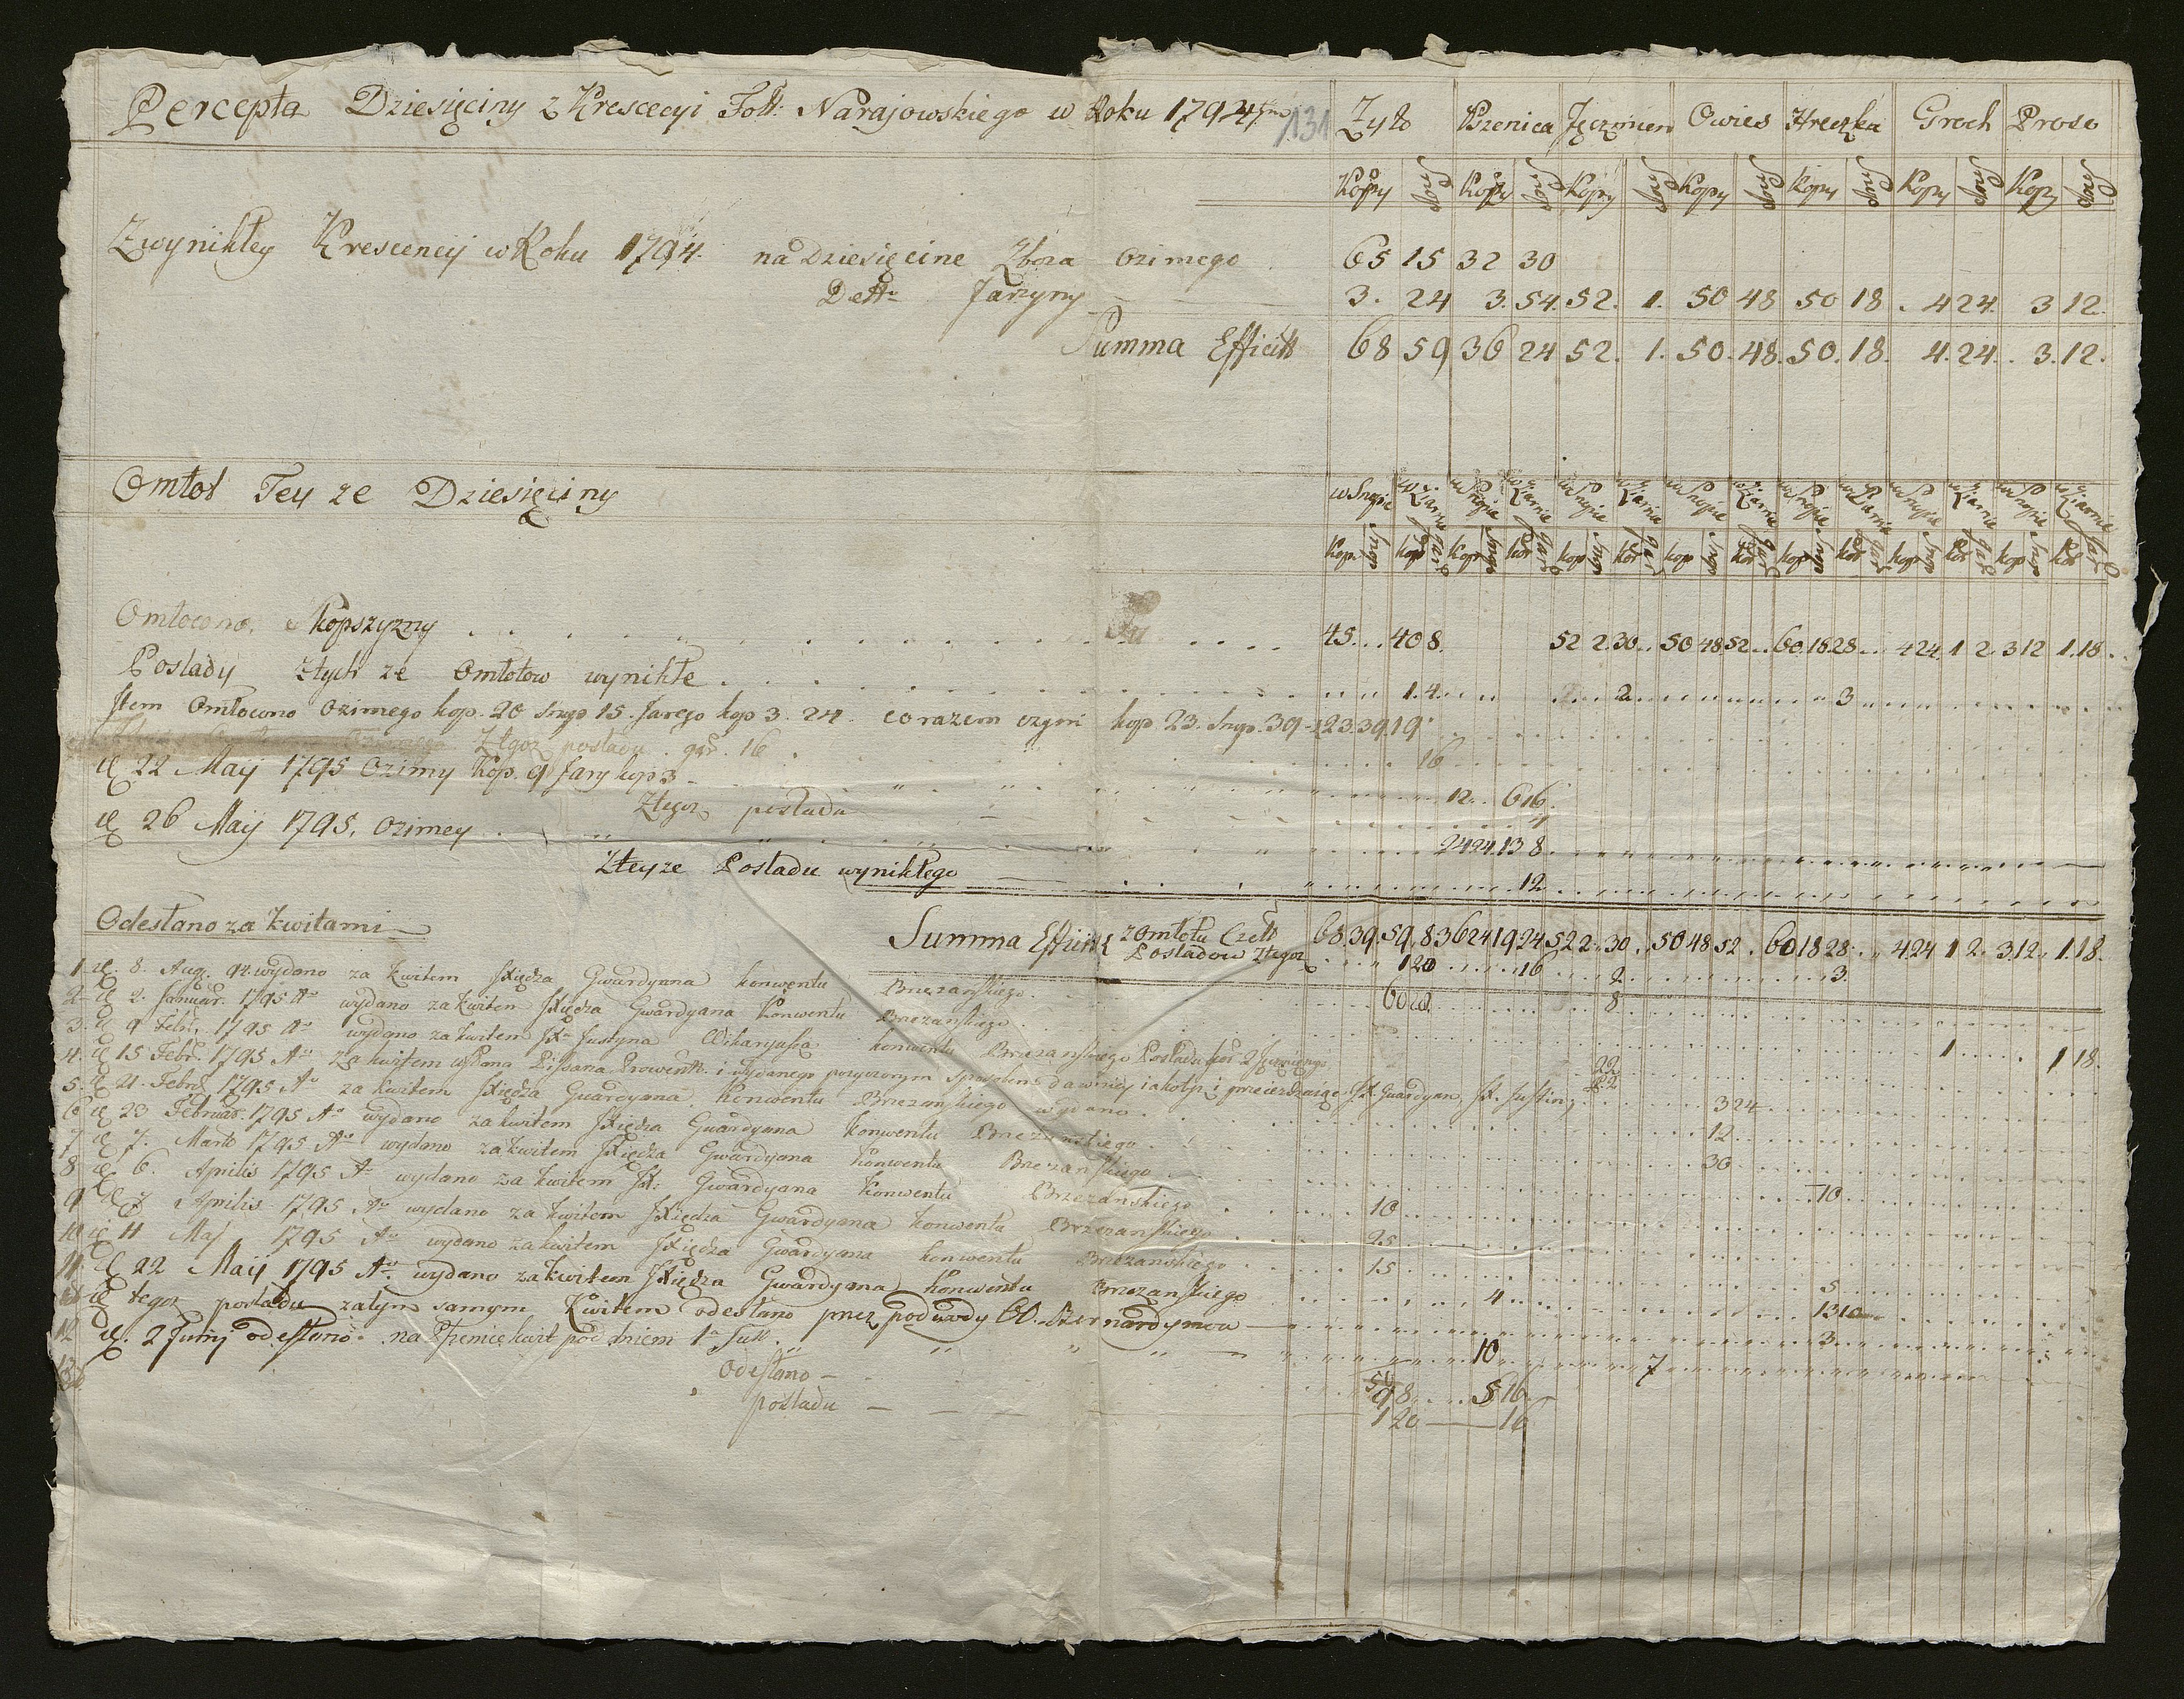 Percepta Dziesięciny z Krescecyi Foll: Narajowskiego w Roku 1794
131
Zyto Pszenica Jęczmien Owies Hreczka Groch Proso
Kopy Snop Kopy Snop Kopy Snop Kopy Snop Kopy Snop Kopy Snop Kopy Snop
Zwynikłey Krescencij w Roku 1794. na Dziesięcine Zboza ozimego 65 15 32 30
Detto Jarzyny 3. 24 3. 54. 52. 1. 50 48 50 18 . 4 24. 3 12.
Summa Efficitt 68 59 36 24 52. 1. 50. 48. 50. 18. 4. 24. . 3. 12.
Omłot Tey ze Dziesięciny
w Snopie w Ziarnie w Snopie w Ziarnie w Snopie w Ziarnie w Snopie w Ziarnie w Snopie w Ziarnie w Snopie w Ziarnie w Snopie w Ziarnie
Kop. Snop kor gar kop Snop kor gar kop Snop kor gar kop Snop kor gar kop Snop kor gar kop Snop kor gar kop Snop kor gar
Omłocono. Kopszyzny 45... 40 8. 52 2. 30.. 50 48 52.. 60. 18 28... 4 24. 1 2. 3 12 1. 18..
Poslady ztych ze Omłotow wynikłe 1. 4. 2 3
Item Omłocono Ozimego kop. 20 Snop 15. Jarego kop 3. 24. co razem czyni kop 23. Snop. 39 - 23. 39. 19
Ztgoz posladu . gar. 16 . 16
d 22 Maij 1795 Ozimy Kop. 9 Jary kop 3 12.. 6 16.
Ztegoz posladu 4
d 26 Maij 1795. Ozimey 24 24. 13 8
Zteyze Posladu wynikłego 12
Odesłano za kwitami
Summa Efficitt z omłotu Czell 68. 39. 59. 8 36 24 19 24 52 2.. 30.. 50 48 52. 60 18 28.. 4 24 1 2. 3. 12. 1. 18.
Posladow Ztegoz 1 20 16 2 3.
1. d. 8. Aug. wydano za kwitem Xiędza Gwardyana konwentu Brzezanskiego. 8
2. d 2. Januar. 1795 Ao wydano za kwitem Xiędza Gwardyana Konwentu Brzezanskiego
3. d 9 Febr. 1795 Ao wydano za kwitem X Justyna Wikaryusza konwentu Brzezanskiego Posladu kor 2 Jęczmiennego 1 1 18.
4. d 15 Febr. 1795 Ao za kwitem Pissarza Prowent. i wydanego pozyczonym sposobem dawniey iakoby i przeiezdzaiąc X. Gwardyan, X. Justin 22
5. d 21. Febr. 1795 Ao za kwitem Xiędza Gwardyana. Konwentu Brzezanskiego wydano. 3 24
6 d 23 Februar. 1795 Ao wydano za kwitem Xiędza Gwardyana Konwentu Brzezanskiego 12
7 d 7. Marto 1795 Ao wydano za kwitem Xiędza Gwardyana Konwentu Brzezanskiego 30
8 d 6. Aprilis 1795 Ao wydano za kwitem X: Gwardyana Konwentu Brzezanskiego 10
9 d 7 Aprilis 1795 Ao wydano za kwitem Xiędza Gwardyana konwentu Brzezanskiego 10
10 d 11 Maj 1795 Ao wydano za kwitem Xiędza Gwardyana konwentu Brzezanskiego 25
11. d 22 Maij 1795 Ao. wydano za kwitem Xiędza Gwardyana Konwentu Brzezanskiego 15 5
d tegoz posladu zatym samym Kwitem odesłano przez podwody OO. Bernardynow 4 13 10
12 d. 2 Junij odesłano. na Pszenicę kwit pod dniem 1a Jull. 3
13 10 7
Odesłano - 9 8 5 16
posladu - 1 20 16